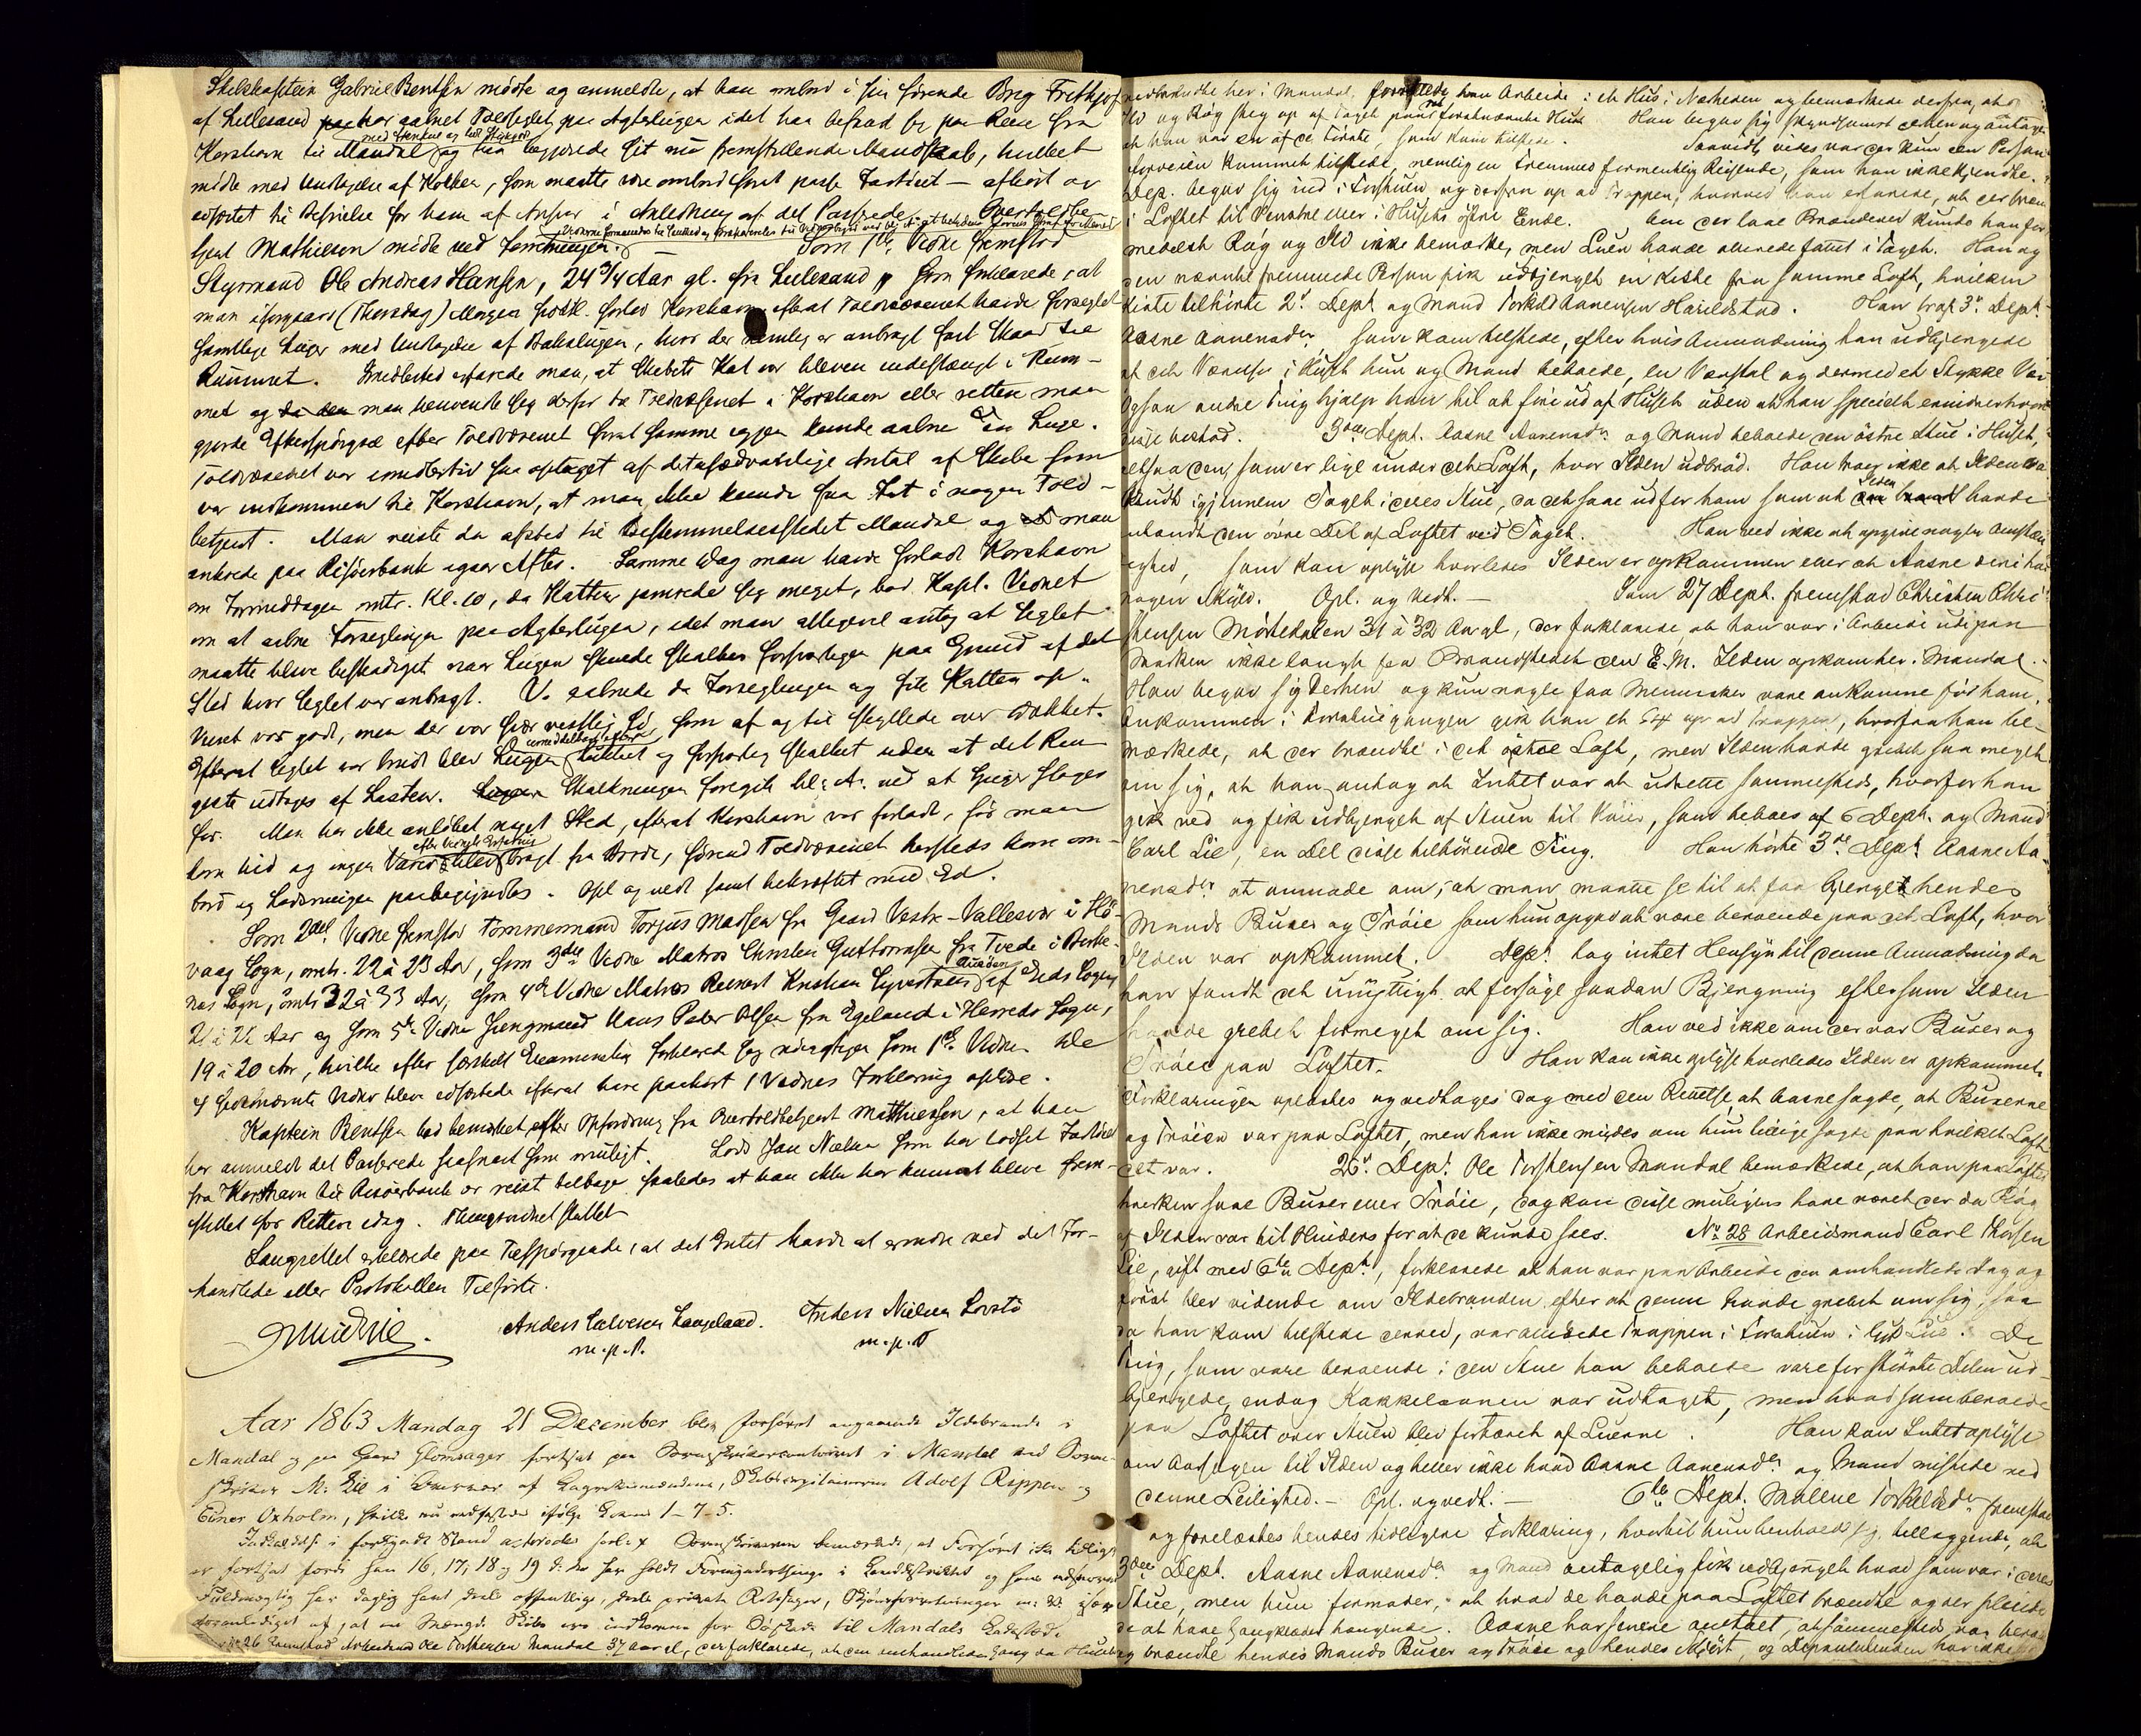 Skibskaptein Gabriel Bentsen mödte og anmeldte, at han ombord i sin förende Brig Frithjof
af Lillesand har aabnet Toldseglet paa Agterlugen idet han befandt sig paa Reise fra
Korshavn til Mandal med Stenkul og lidt Stykgods og han begjærede sit nu fremstillende Mandskab, hvilket
mödte med Undtagelse af Kokken, som maatte være ombord forat passe Fartöiet – afhört og
edfæstet til Befrielse for ham af Ansvar i Anledning af det Passerede. Overtoldbe-
tjent Mathiesen mödte ved Forretningen. Vidnerne formanedes til Sandhed
Som 1ste Vidne fremstod
Styrmand Ole Andreas Hansen, 24 3/4 Aar gl. fra Lillesand, som forklarede, at
man iforgaars (Thorsdag) Morgen forlod Korshavn efterat Toldvæsenet havde forseglet
samtlige Luger med Undtagelse af Baklugen, hvor der nemlig er anbragt fast Skaad til
Rummet. Imidlertid erfarede man, at Skibets Kat var bleven indestængt i Rum-
met og man henvendte sig derfor til Toldvæsenet i Korshavn eller rettere man
gjorde Efterspörgsel efter Toldvæsenet forat samme igjen kunde aabne en Luge.
Toldvæsenet var imidlertid saa optaget af det usædvanlige Antal af Skibe som
var indkommen til Korshavn, at man ikke kunde faa fat i nogen Told-
betjent. Man reiste da afsted til Bestemmelsesstedet Mandal og man
ankrede paa Risöerbank igaar Aftes. Samme Dag man havde forladt Korshavn
om Formiddagen omtr. Kl. 10, da Katten jamrede sig meget, bad Kapt. Vidnet
om at aabne Forseglingen paa Agterlugen, idet man alligevel antog at Seglet
maatte blive beskadiget naar Lugen skulde skalkes forsvarligen paa Grund af det
Sted hvor Seglet var anbragt. Vi aabnede da Forseglingen og fik Katten op.
Veiret var godt, men der var svær vestlig Sö, som af og til skyllede over Dækket.
Efterat Seglet var brudt blev Lugen umiddelbart efter lukket og forsvarlig skalket uden at det Rin-
geste udtoges af Lasten. Skalkningen foregik bl. A. ved at Spiger sloges
for. Man har ikke anlöbet noget Sted, efterat Korshavn var forladt, för man
kom hid og ingen Varer blev efter Vidnets Erfaring bragt fra Borde, förend Toldvæsenet hersteds kom om-
bord og Losningen paabegyndtes. Opl. og vedt. samt bekræftet med Ed.
Som 2det Vidne fremstod Tömmermand Torjus Madsen fra Gaard Vestre-Vallesvær i Hö-
vaag Sogn, omtr. 22 à 23 Aar, som 3die Vidne Matros Christen Guttormsen fra Tvede i Birke-
næs Sogn, omtr 32 à 33 Aar, som 4de Vidne Matros Reinert Kristian af Eids Sogn
21 à 22 Aar og som 5te Vidne Jungmand Hans Peter Olsen fra Egeland i Herreds Sogn,
19 à 20 Aar, hvilke efter særskilt Examination forklarede sig eenstydigen som 1ste Vidne. Alle
4 sidstnævnte Vidner bleve edfæstede efterat have paahört 1 Vidnes Forklaring oplæse.
Kaptein Bentsen bad bemærket, efter Opfordring fra Overtoldbetjent Matthiessen, at han
har anmeldt det Passerede saasnart som muligt. Lods Jan Nielsen som har lodset Fartöiet
fra Korshavn til Risöerbank er reist tilbage saaledes at han ikke har kunnet blive frem-
stillet for Retten idag. Thingsvidnet sluttet
Laugrettet erklærede paa Tilspörgende, at det Intet havde at erindre ved det For-
handlede eller Protokollen Tilförte.
Anders Salvesen Laugeland. Anders Nielsen
m. p. P. m. p. P
Aar 1863 Mandag 21 December blev Forhöret angaaende Ildebrande i
Mandal og paa Gaard Glomsager fortsat paa Sorenskrivercontoiret i Mandal ved Soren-
skriver M: Lie i Overvær af Laugrettesmændene, Skibscapitainerne Adolf Reppen og
Einer Oxholm, hvilke nu edfæstedes ifölge Loven 1–7–5.
er fortsat fordi han 16, 17, 18 og 19 d: M: har holdt i Landdistriktet og hans
Fuldmægtig har daglig havt dels offentlige, dels private Retssager, Skjönsforretninger m: v: især
foranlediget af, at en Mængde Skibe ere indkomne for Söskade til Mandals Ladested.
No 26 fremstod Arbeidsmd Ole Torstensen Mandal 37 Aar gl., der forklarede, at den omhandlede Gang da Huset
nedbrændte her i Mandal, han Arbeide i et Hus i Nærheden og bemærkede derfra, at
Ild og Rög steg op af Taget paa fornævnte Huus. Han begav sig skyndsomst derhen og antager
at han var en af de förste, som kom tilstede. Saavidt vides var der kun een Person
forveien kommet tilstede, nemlig en fremmed formentlig Reisende, som han ikke kjendte.
Dep. begav sig ind i Forstuen og derfra op ad Trappen, hvorved han erfarede, at der brændte
i Loftet til Venstre eller i Husets östre Ende. Om der laae Brændeved kunde han for-
medelst Rög og Ild ikke bemærke, men Luen havde allerede fattet i Taget. Han og
den nævnte fremmede Person fik udbjerget en Kiste fra samme Loft, hvilken
Kiste tilhörte 2de Dept. og Mand Torkild Aanensen Hareldstad. Han traf 3de Dept.
Aasne Aanensdr, som kom tilstede, efter hvis Anmodning han udbjergede
af det Værelse i Huset hun og Mand beboede, en Vævstol og dermed et Stykke Væv.
Ogsaa andre Ting hjalp han til at faae ud af Huset uden at han specielt erindrer hvori
disse bestod. 3die Dept. Aasne Aanensdr og Mand beboede den östre Stue i Huset,
altsaa den, som er lige under det Loft, hvor Ilden udbröd. Han troer ikke at Ilden var
brudt igjennem Taget i deres Stue, da det saae ud for ham som at Ilden havde
antændt den övre Del af Loftet ved Taget. Han ved ikke at opgive nogen Omstæn-
dighed, som kan oplyse hvorledes Ilden er opkommen eller at Aasne deri har
nogen Skyld. Opl. og vedt. – Som 27 Dept. fremstod Christen Chri-
stensen Mörkedalen 31 à 32 Aar gl, der forklarede at han var i Arbeide ude paa
Marken ikke langt fra Brandstedet den E. M. Ilden opkom her i Mandal.
Han begav sig derhen og kun nogle faa Mennesker vare ankomne för ham.
Ankommen i Forstuegangen gik han et Par op ad Trappen, hvorfra han be-
mærkede, at der brændte i det östre Loft, men Ilden havde grebet saa meget
om sig, at han antog at Intet var at udrette sammesteds, hvorfor han
gik ned og fik udbjerget af Stuen til Höire, som beboes af 6 Dept. og Mand
Carl Lie, en Del disse tilhörende Ting. Han hörte 3de Dept. Aasne Aa-
nensdr at anmode om, at man maatte se til at faa bjerget hendes
Mands Buxer og Tröie som hun opgav at være beroende paa det Loft, hvor
Ilden var opkommet. Dept. tog intet Hensyn til denne Anmodning da
han fandt det unyttigt at forsöge saadan Bjergning eftersom Ilden
havde grebet formeget om sig. Han ved ikke om der var Buxer og
Tröie paa Loftet. Han kan ikke oplyse hvorledes Ilden er opkommet.
Forklaringen oplæstes og vedtages dog med den Rettelse, at Aasne sagde, at Buxerne
og Tröien var paa Loftet, men han ikke mindes om hun tillige sagde paa hvilket Loft
det var. 26de Dept. Ole Torstensen Mandal bemærkede, at han paa Loftet
hverken saae Buxer eller Tröie, dog kan disse muligens have været der da Rög
af Ilden var til Hinders for at de kunde sees. No 28 Arbeidsmand Carl Thorsen
Lie, gift med 6te Dept., forklarede at han var paa Arbeide den omhandlede Dag og
först blev vidende om Ildebranden efter at denne havde grebet om sig, saa
da han kom tilstede dermed, var allerede Trappen i Forstuen i lys Lue. De
Ting, som vare beroende i den Stue han beboede vare for störste Delen ud-
bjergede, endog Kakkelovnen var udtaget, men hvad som beroede
paa Loftet over Stuen blev fortæret af Luerne. Han kan Intet oplyse
om Aarsagen til Ilden og heller ikke hvad Aasne Aanensdr og Mand mistede ved
denne Leilighed. – Opl. og vedt. – 6te Dept. Malene Torkildsdr fremstod
og forelæstes hendes tidligere Forklaring, hvortil hun henholdt sig, tillæggende, at
3die Dept. Aasne Aanensdr og Mand antagelig fik udbjerget hvad som var i deres
Stue, men hun formoder, at hvad de havde paa Loftet brændte og der pleiede
de at have Gangklæder hængende. Aasne har senere anført, at sammesteds var
og brændte hendes Mands Buxer og Tröie og hendes Skjört, og Deponentinden har ikke